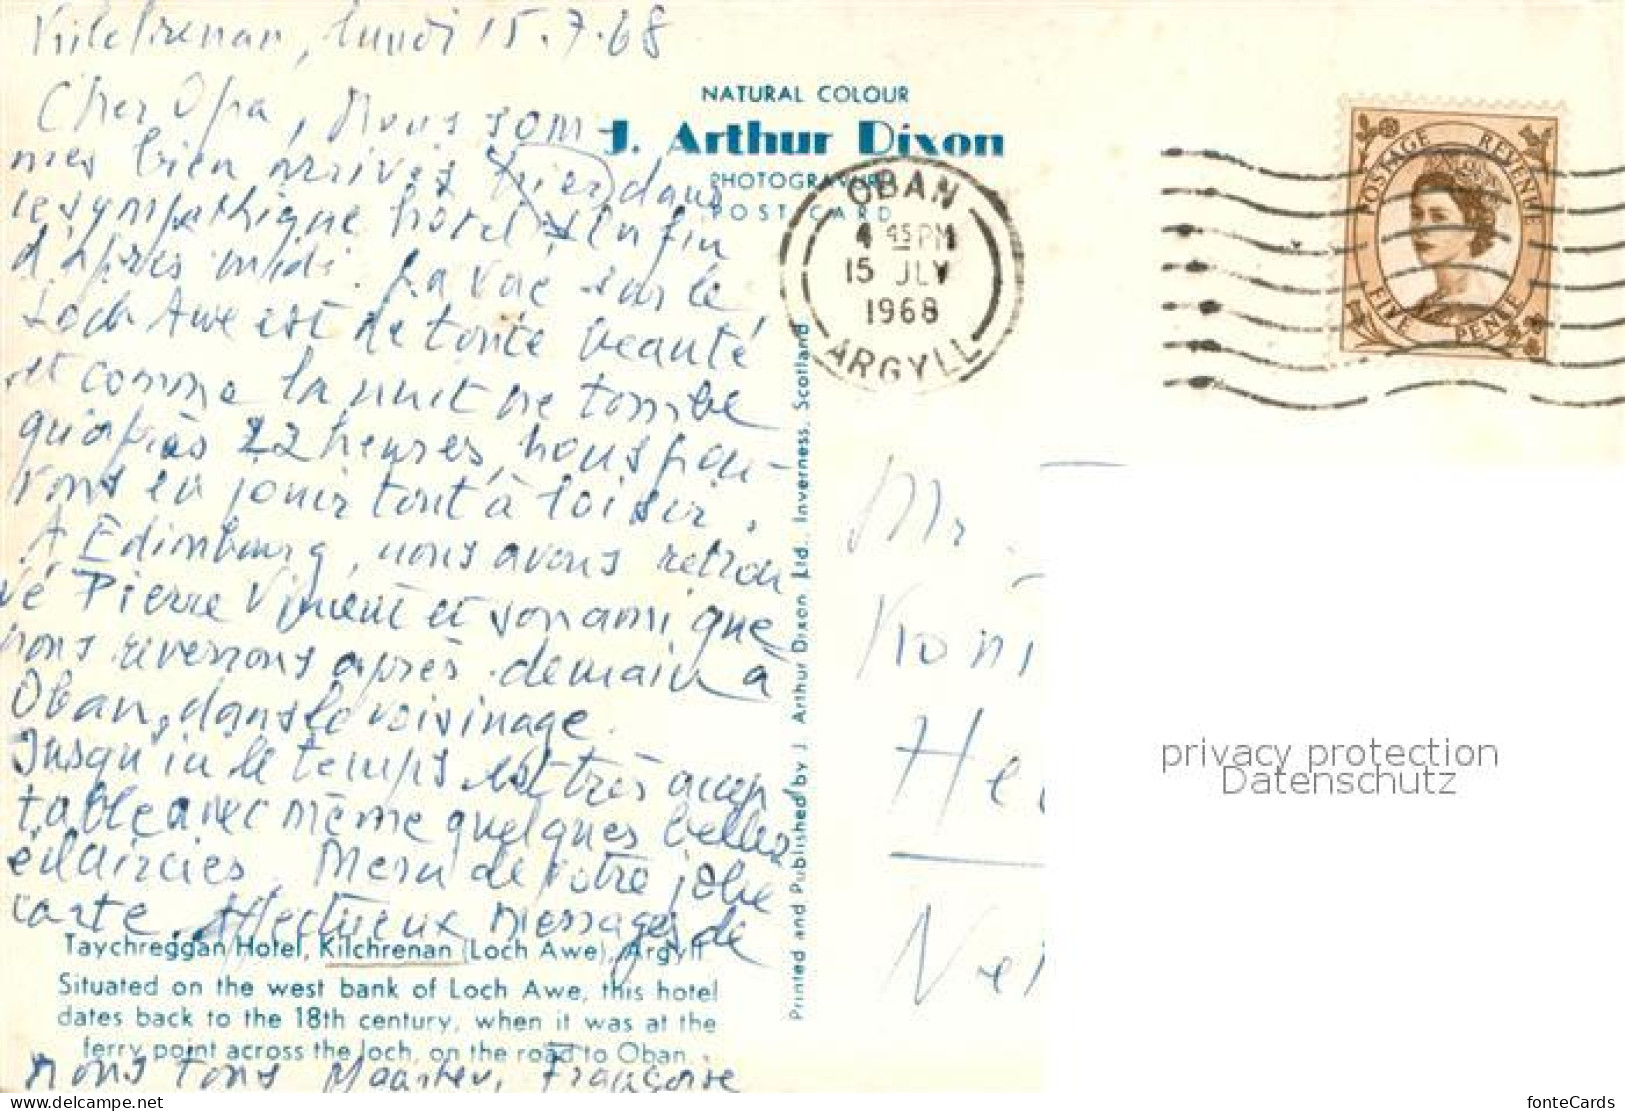 Kilchrenan, lundi 15.7.68
Cher Opa, Nous som-
mes bien arrivés hier dans
le sympathique hôtel en fin
d'après midi. La vue sur le
Loch Awe est de toute beauté
et comme la nuit ne tombe
qu'après 22 heures, nous pou-
vons en jouir tout à loisir.
A Edimbourg, nous avons retrou
vé Pierre Vincent et son ami que
nous reverrons après-demain à
Oban, dans le voisinage.
Jusqu'ici le temps est très accep
table avec même quelques belles
éclaircies. Merci de votre jolie
carte. Affectueux messages de
nous tous Françoise
NATURAL COLOUR
J. Arthur Dixon
PHOTOGRAVURE
POST CARD
OBAN
4 45 PM
15 JLY
1968
ARGYLL
POSTAGE REVENUE
FIVE PENCE
Printed and Published by J. Arthur Dixon Ltd., Inverness, Scotland
Mr.
Taychreggan Hotel, Kilchrenan (Loch Awe), Argyll
Situated on the west bank of Loch Awe, this hotel
dates back to the 18th century, when it was at the
ferry point across the loch, on the road to Oban.
privacy protection
Datenschutz
www.delcampe.net
fonteCards